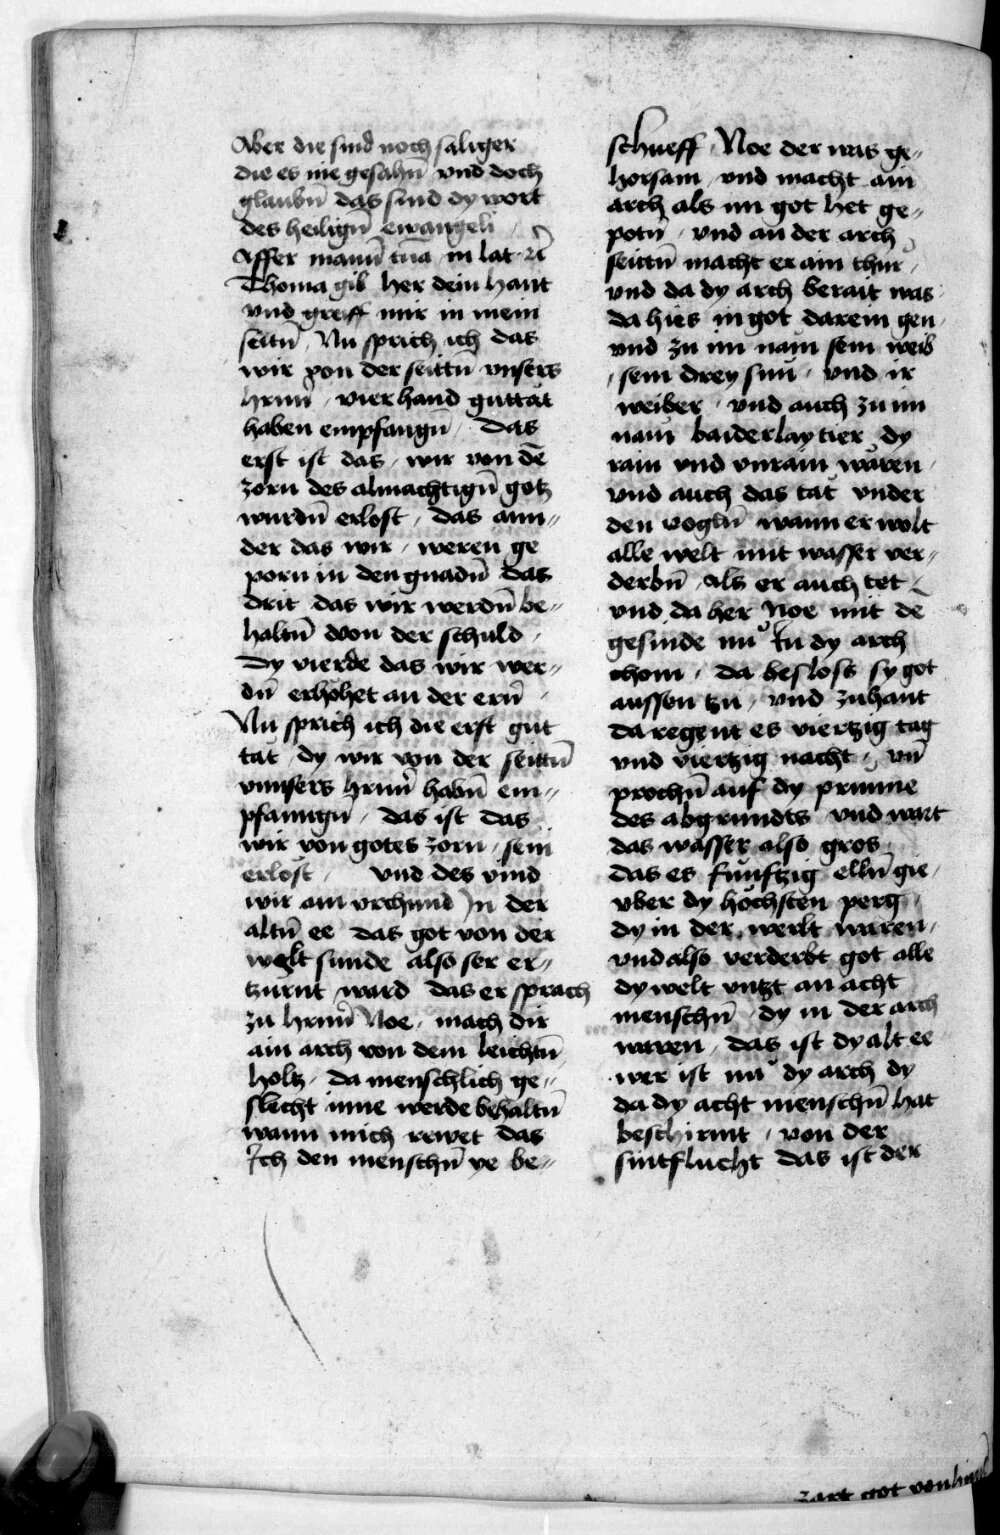 Aber die sind noch saliger
die es nie gesahn̄ vnd doch
glaubn̄ das sind dy wort
des heilign̄ ewangeli
Affer manū tuā in lat᷑ Etc̄
Thoma gib her dein hant
vnd greiff mir in mein
seitn̄ Nu sprich ich das
wir von der seittn̄ vnsers
hrnn̄ vierhand guttat
haben empfangn̄ Das
erst ist das wir von dē
zorn des almachtign̄ gotz
wurdn̄ erlost das ann〃
der das wir weren ge
porn in den gnadn̄ das
drit das wir werdn̄ be〃
haltn̄ von der schuld
Dy vierde das wir wer〃
dn̄ erhöhet an der ern̄
Nu sprich ich die erst gut
tat dy wir von der seittn̄
vnnsers hrnn̄ habn̄ em〃
pfanngn̄ das ist das
wir von gotes zorn sein
erlöst vnd des vind
wir ain vrchund In der
altn̄ ee das got von der
welt sunde also ser er〃
tzürnt ward das er sprach
zu hrnn̄ Noe mach dir
ain arch von dem leichtn̄
holtz da menschlich ge〃
slecht inne werde behaltn̄
wann mich rewet das
Ich den menschn̄ ye be〃
schueff Noe der was ge〃
horsam vnd macht ain
arch als im got het ge〃
potn̄ vnd an der arch
seittn̄ macht er ain thür
vnd da dy arch berait was
da hies in got darein gen
vnd zu im nam sein weib
sein drey sün vnd ir
weiber vnd auch zu im
nam baiderlay tier dy
rain vnd vnrain wåren
vnd auch das tat vnder
den vogln̄ wann er wolt
alle welt mit wasser ver〃
derbn̄ als er auch tet
vnd da her Noe mit de
gesinde nu In dy arch
chom da beslost sy got
aussen tzu vnd zuhant
da regent es viertzig tag
vnd viertzig nacht vn̄
prochn̄ auf dy prunne
des abgrundts vnd wart
das wasser also gros
das es funftzig elln̄ gie
vber dy höchsten perg
dy in der werlt waren
vnd also verderbt got alle
dy welt vntzt an acht
menschn̄ dy in der arch
waren das ist dy alt ee
wer ist nu dy arch dy
da dy acht menschn̄ hat
beschirmt von der
sintflucht das ist der
zart got von himel